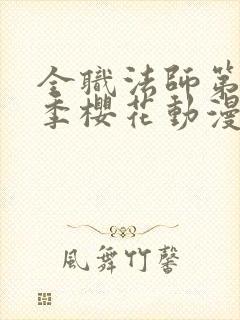 全職法師第
季櫻花動漫
風舞竹馨